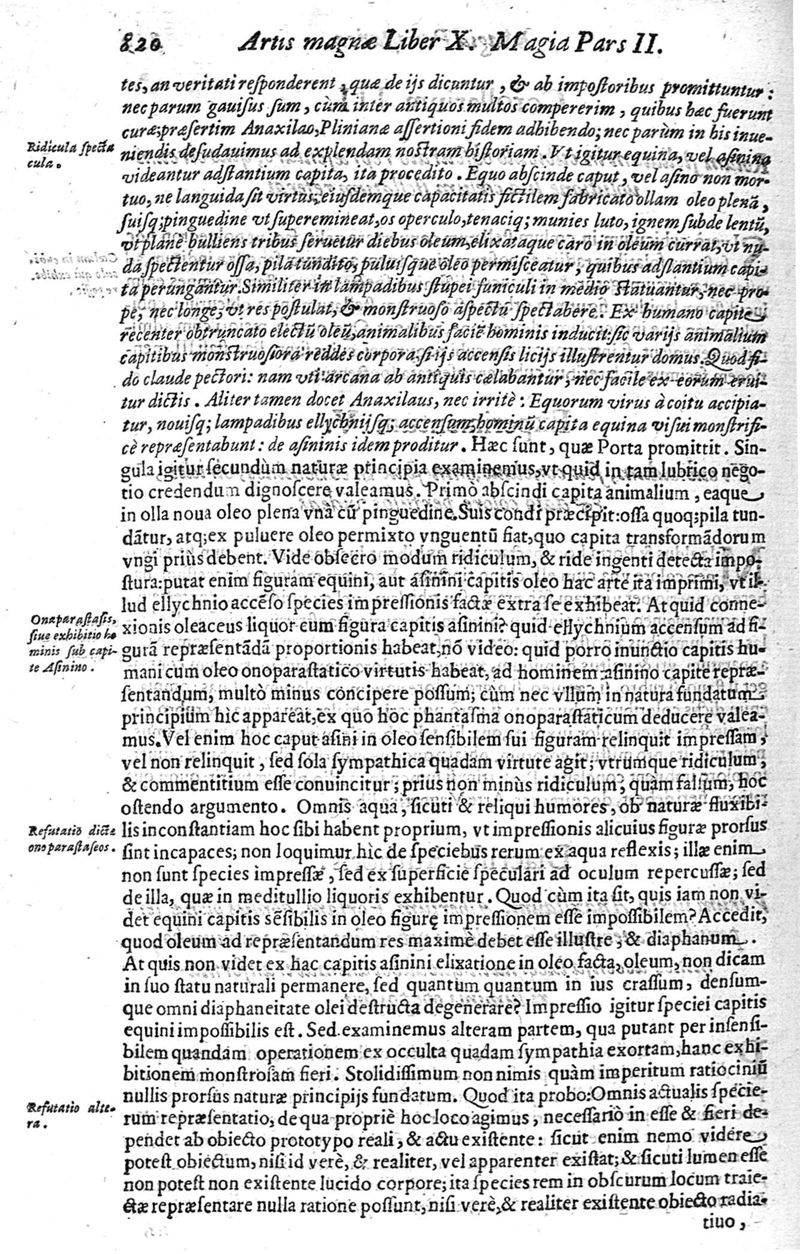 820 Artis magnæ Liber X. Magia Pars II.
tes, an veritati responderent, quæ de ijs dicuntur, & ab impostoribus promittuntur:
nec parum gauisus sum, cùm inter antiquos multos compererim, quibus hæc fuerunt
curæ; præsertim Anaxilao, Plinianæ assertioni fidem adhibendo; nec parùm in his inue-
Ridicula specta
cula.
niendis desudauimus ad explendam nostram historiam. Vt igitur equina, vel asinina
videantur adstantium capita, ita procedito. Equo abscinde caput, vel asino non mor-
tuo, ne languida sit virtus; eiusdemque capacitatis fictilem fabricato ollam oleo plenã,
suisq; pinguedine vt superemineat, os operculo, tenaciq; munies luto, ignem subde lentũ,
vt planè bulliens tribus seruetur diebus oleum, elixataque caro in oleum currat, vt nu-
da spectentur ossa, pila tundito, puluisque oleo permisceatur, quibus adstantium capi-
ta perungantur. Similiter in lampadibus stupei funiculi in medio statuantur, nec pro-
pè, nec longè, vt res postulat, & monstruoso aspectu spectabere. Ex humano capite
recenter obtruncato electũ oleũ, animalibus faciẽ hominis inducit: sic varijs animalium
capitibus monstruosiora reddes corpora, si ijs accensis licijs illustrentur domus. Quod fi-
do claude pectori: nam vti arcana ab antiquis cælabantur, nec facile ex eorum erui-
tur dictis. Aliter tamen docet Anaxilaus, nec irritè: Equorum virus à coitu accipia-
tur, nouisq; lampadibus ellychnijsq; accensum, hominũ capita equina visui monstrifi-
cè repræsentabunt: de asininis idem proditur. Hæc sunt, quæ Porta promittit. Sin-
gula igitur secundùm naturæ principia examinemus, vt quid in tam lubrico nego-
tio credendum dignoscere valeamus. Primò abscindi capita animalium, eaque
in olla noua oleo plena vnà cũ pinguedine suis condi præcipit: ossa quoq; pila tun-
dãtur, atq; ex puluere oleo permixto ynguentũ fiat, quo capita transformãdorum
vngi priùs debent. Vide obsecro modum ridiculum, & ride ingenti detecta impo-
stura: putat enim figuram equini, aut asinini capitis oleo hac arte ita imprimi, vt il-
lud ellychnio accẽso species impressionis factæ extra se exhibeat. At quid conne-
Onaparastasis,
siue exhibitio ho
minis sub capi-
te Asinino.
xionis oleaceus liquor cum figura capitis asinini? quid ellychnium accensum ad fi-
gurã repræsentãdã proportionis habeat, nõ video: quid porro inunctio capitis hu-
mani cum oleo onoparastatico virtutis habeat, ad hominem asinino capite repræ-
sentandum, multò minus concipere possum; cùm nec vllum in natura fundatum
principium hìc appareat, ex quo hoc phantasma onoparastaticum deducere valea-
mus. Vel enim hoc caput asini in oleo sensibilem sui figuram relinquit impressam,
vel non relinquit, sed sola sympathica quadam virtute agit; vtrumque ridiculum,
& commentitium esse conuincitur; prius non minùs ridiculum, quàm falsum, hoc
ostendo argumento. Omnis aqua, sicuti & reliqui humores, ob naturæ fluxibi-
Refutatio dictæ
onoparastaseos.
lis inconstantiam hoc sibi habent proprium, vt impressionis alicuius figuræ prorsus
sint incapaces; non loquimur hìc de speciebus rerum ex aqua reflexis; illæ enim
non sunt species impressæ, sed ex superficie speculari ad oculum repercussæ; sed
de illa, quæ in meditullio liquoris exhibentur. Quod cùm ita sit, quis iam non vi-
det equini capitis sẽsibilis in oleo figurę impressionem esse impossibilem? Accedit,
quod oleum ad repræsentandum res maximè debet esse illustre, & diaphanum.
At quis non videt ex hac capitis asinini elixatione in oleo facta, oleum, non dicam
in suo statu naturali permanere, sed quantum quantum in ius crassum, densum-
que omni diaphaneitate olei destructa degenerare? Impressio igitur speciei capitis
equini impossibilis est. Sed examinemus alteram partem, qua putant per insensi-
bilem quandam operationem ex occulta quadam sympathia exortam, hanc exhi-
bitionem monstrosam fieri. Stolidissimum non nimis quàm imperitum ratiociniũ
nullis prorsus naturæ principijs fundatum. Quod ita probo: Omnis actualis specie-
Refutatio alte-
ra.
rum repræsentatio, de qua propriè hoc loco agimus, necessariò in esse & fieri de-
pendet ab obiecto prototypo reali, & actu existente: sicut enim nemo videre
potest obiectum, nisi id verè, & realiter, vel apparenter existat; & sicuti lumen esse
non potest non existente lucido corpore; ita species rem in obscurum locum traie-
ctæ repræsentare nulla ratione possunt, nisi verè, & realiter existente obiecto radia-
tiuo,